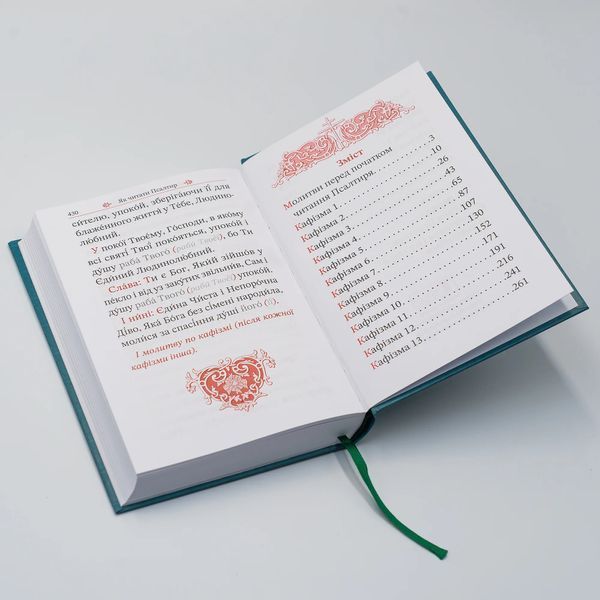 430 Як читати Псалтир
си́телю, упоко́й, зберіга́ючи її́ для
блаже́нного життя́ у Те́бе, Людино-
лю́бний.
У поко́ї Твоє́му, Го́споди, в яко́му
всі святі́ Твої́ поко́яться, упоко́й і
ду́шу раба́ Твого́ (раби́ Твоє́ї), бо Ти
Єди́ний Людинолю́бний.
Сла́ва: Ти є Бог, Яки́й зійшо́в у
пе́кло і від уз заку́тих звільни́в. Сам і
ду́шу раба́ Твого́ (раби́ Твоє́ї) упоко́й.
І ни́ні: Єди́на Чи́ста і Непоро́чна
Ді́во, Яка́ Бо́га без сі́мені народи́ла,
моли́ся за спасі́ння душі́ його́ (її́).
І молитву по кафізмі (після кожної
кафізми інша).
Зміст
Молитви перед початком
читання Псалтиря. . . . . . . . . . . 3
Кафізма 1. . . . . . . . . . . . . . . . . . 10
Кафізма 2. . . . . . . . . . . . . . . . . . 26
Кафізма 3. . . . . . . . . . . . . . . . . . 43
Кафізма 4. . . . . . . . . . . . . . . . . . 65
Кафізма 5. . . . . . . . . . . . . . . . . . 87
Кафізма 6. . . . . . . . . . . . . . . . . . 107
Кафізма 7. . . . . . . . . . . . . . . . . . 130
Кафізма 8. . . . . . . . . . . . . . . . . . 152
Кафізма 9. . . . . . . . . . . . . . . . . . 171
Кафізма 10. . . . . . . . . . . . . . . . . 191
Кафізма 11. . . . . . . . . . . . . . . . . 216
Кафізма 12. . . . . . . . . . . . . . . . . 241
Кафізма 13. . . . . . . . . . . . . . . . . 261